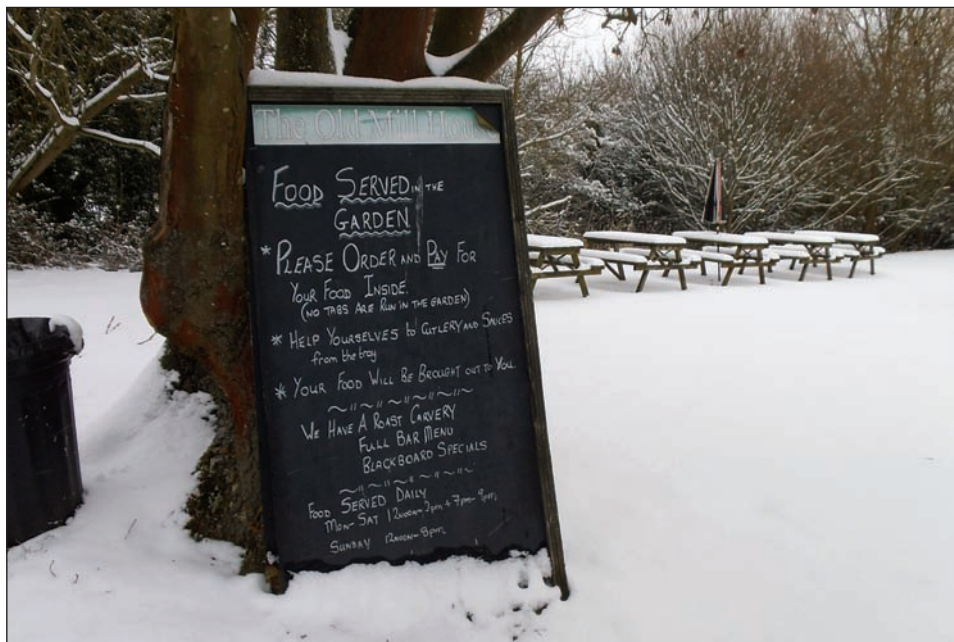 The Old Mill Hou
FOOD SERVED IN THE
GARDEN
* PLEASE ORDER AND PAY FOR
YOUR FOOD INSIDE.
(NO TABS ARE RUN IN THE GARDEN)
* HELP YOURSELVES to CUTLERY AND SAUCES
from the tray
* YOUR FOOD WILL BE BROUGHT OUT TO YOU.
WE HAVE A ROAST CARVERY
FULL BAR MENU
BLACKBOARD SPECIALS
FOOD SERVED DAILY
MON-SAT 12noon-2pm + 7pm-9pm
SUNDAY 12NOON-8pm